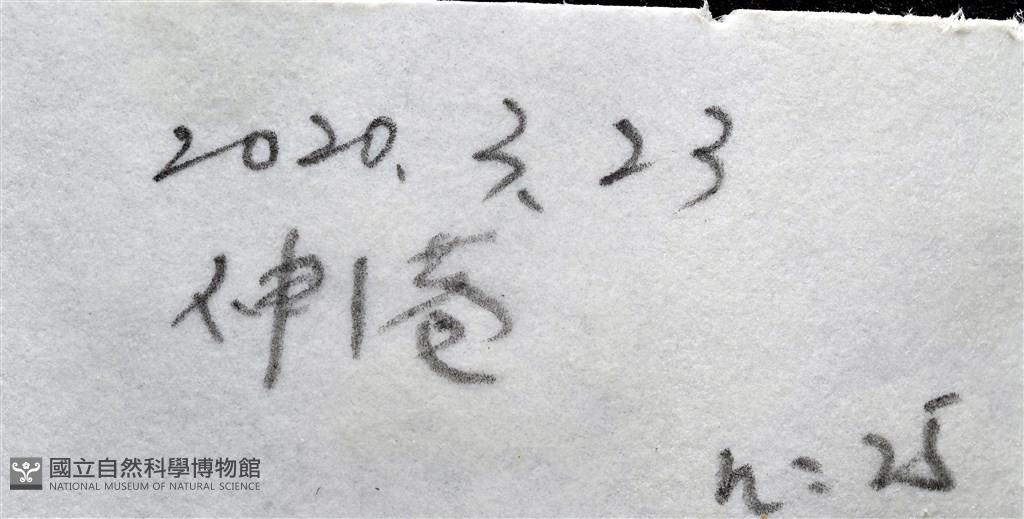 2020. 3. 23
仲1巷
n=25
國立自然科學博物館
NATIONAL MUSEUM OF NATURAL SCIENCE